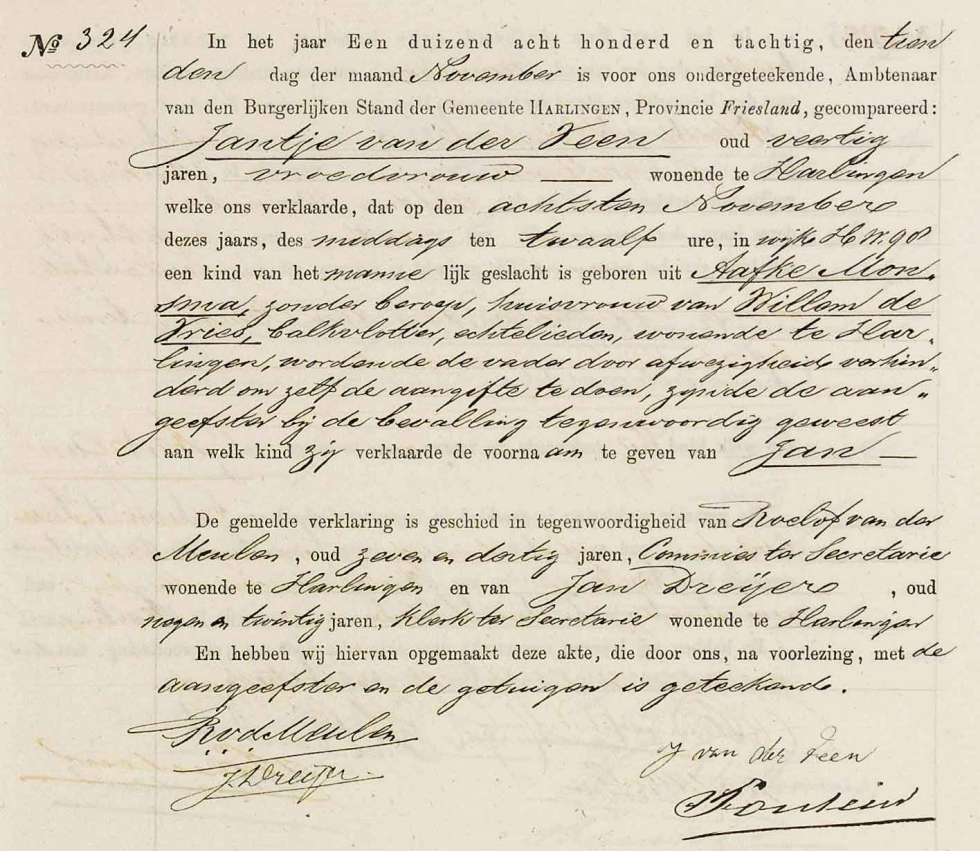 No 324
In het jaar Een duizend acht honderd en tachtig, den tien
den dag der maand November is voor ons ondergeteekende, Ambtenaar
van den Burgerlijken Stand der Gemeente HARLINGEN, Provincie Friesland, gecompareerd:
Jantje van der Veen oud veertig
jaren, vroedvrouw — wonende te Harlingen
welke ons verklaarde, dat op den achtsten November
dezes jaars, des middags ten twaalf ure, in wijk H No 98
een kind van het manne lijk geslacht is geboren uit Aafke Mon„
sma, zonder beroep, huisvrouw van Willem de
Vries, balkvlotter, echtelieden, wonende te Har„
lingen, wordende de vader door afwezigheid verhin„
derd om zelf de aangifte te doen, zijnde de aan„
geefster bij de bevalling tegenwoordig geweest
aan welk kind zij verklaarde de voornaam te geven van Jan —
De gemelde verklaring is geschied in tegenwoordigheid van Roelof van der
Meulen, oud zeven en dertig jaren, Commies ter Secretarie
wonende te Harlingen en van Jan Dreijer, oud
negen en twintig jaren, klerk ter Secretarie wonende te Harlingen
En hebben wij hiervan opgemaakt deze akte, die door ons, na voorlezing, met de
aangeefster en de getuigen is geteekend.
R v d Meulen
J Dreijer
J van der Veen
Fontein